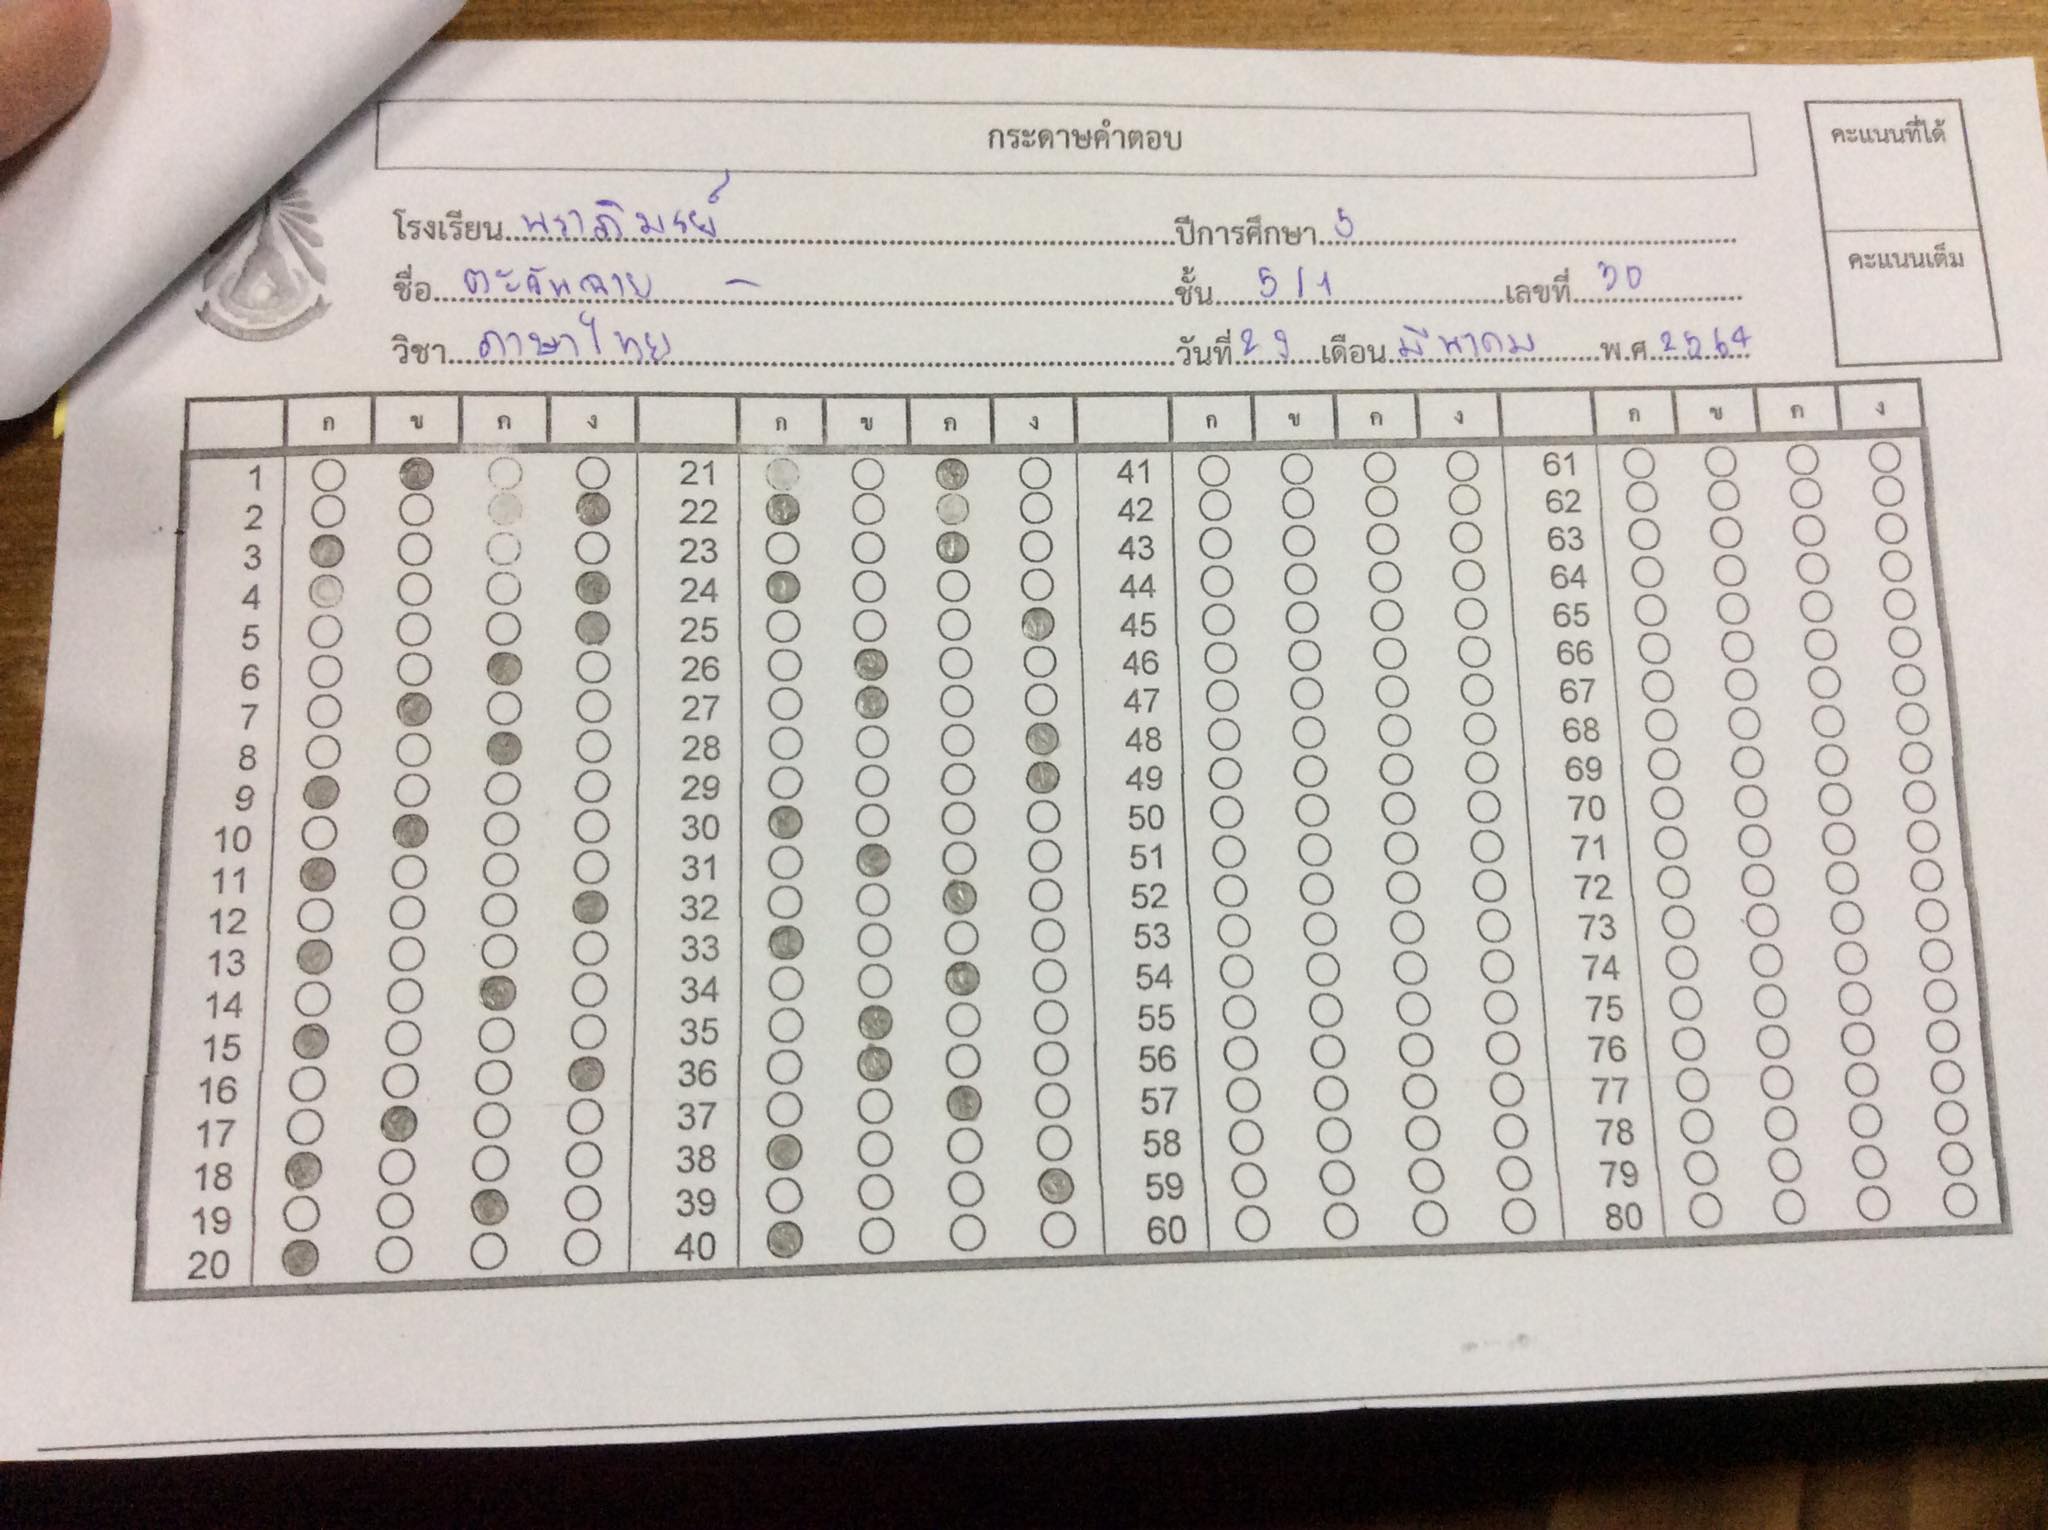 กระดาษคำตอบ
คะแนนที่ได้
โรงเรียน พราภิมรย์ ปีการศึกษา 5
คะแนนเต็ม
ชื่อ ตะวันฉาย - ชั้น 5/1 เลขที่ 30
วิชา ภาษาไทย วันที่ 29 เดือน มีนาคม พ.ศ. 2564
ก ข ค ง ก ข ค ง ก ข ค ง ก ข ค ง
1 21 41 61
2 22 42 62
3 23 43 63
4 24 44 64
5 25 45 65
6 26 46 66
7 27 47 67
8 28 48 68
9 29 49 69
10 30 50 70
11 31 51 71
12 32 52 72
13 33 53 73
14 34 54 74
15 35 55 75
16 36 56 76
17 37 57 77
18 38 58 78
19 39 59 79
20 40 60 80